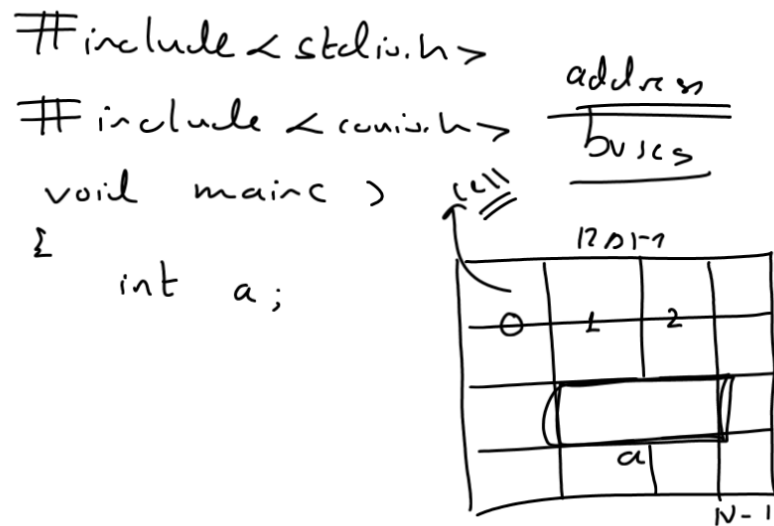 #include<stdio.h>
#include<conio.h>
void main( )
{
int a;
address
buses
cell
RAM
0 1 2
a
N-1